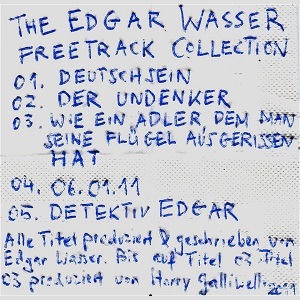 THE EDGAR WASSER
FREETRACK COLLECTION
01. DEUTSCHSEIN
02. DER UNDENKER
03. WIE EIN ADLER DEM MAN
SEINE FLÜGEL AUSGERISSEN
HAT
04. 06.01.11
05. DETEKTIV EDGAR
Alle Titel produziert & geschrieben von
Edgar Wasser. Bis auf Titel 03. Titel
03 produziert von Harry Galliwelli
2011